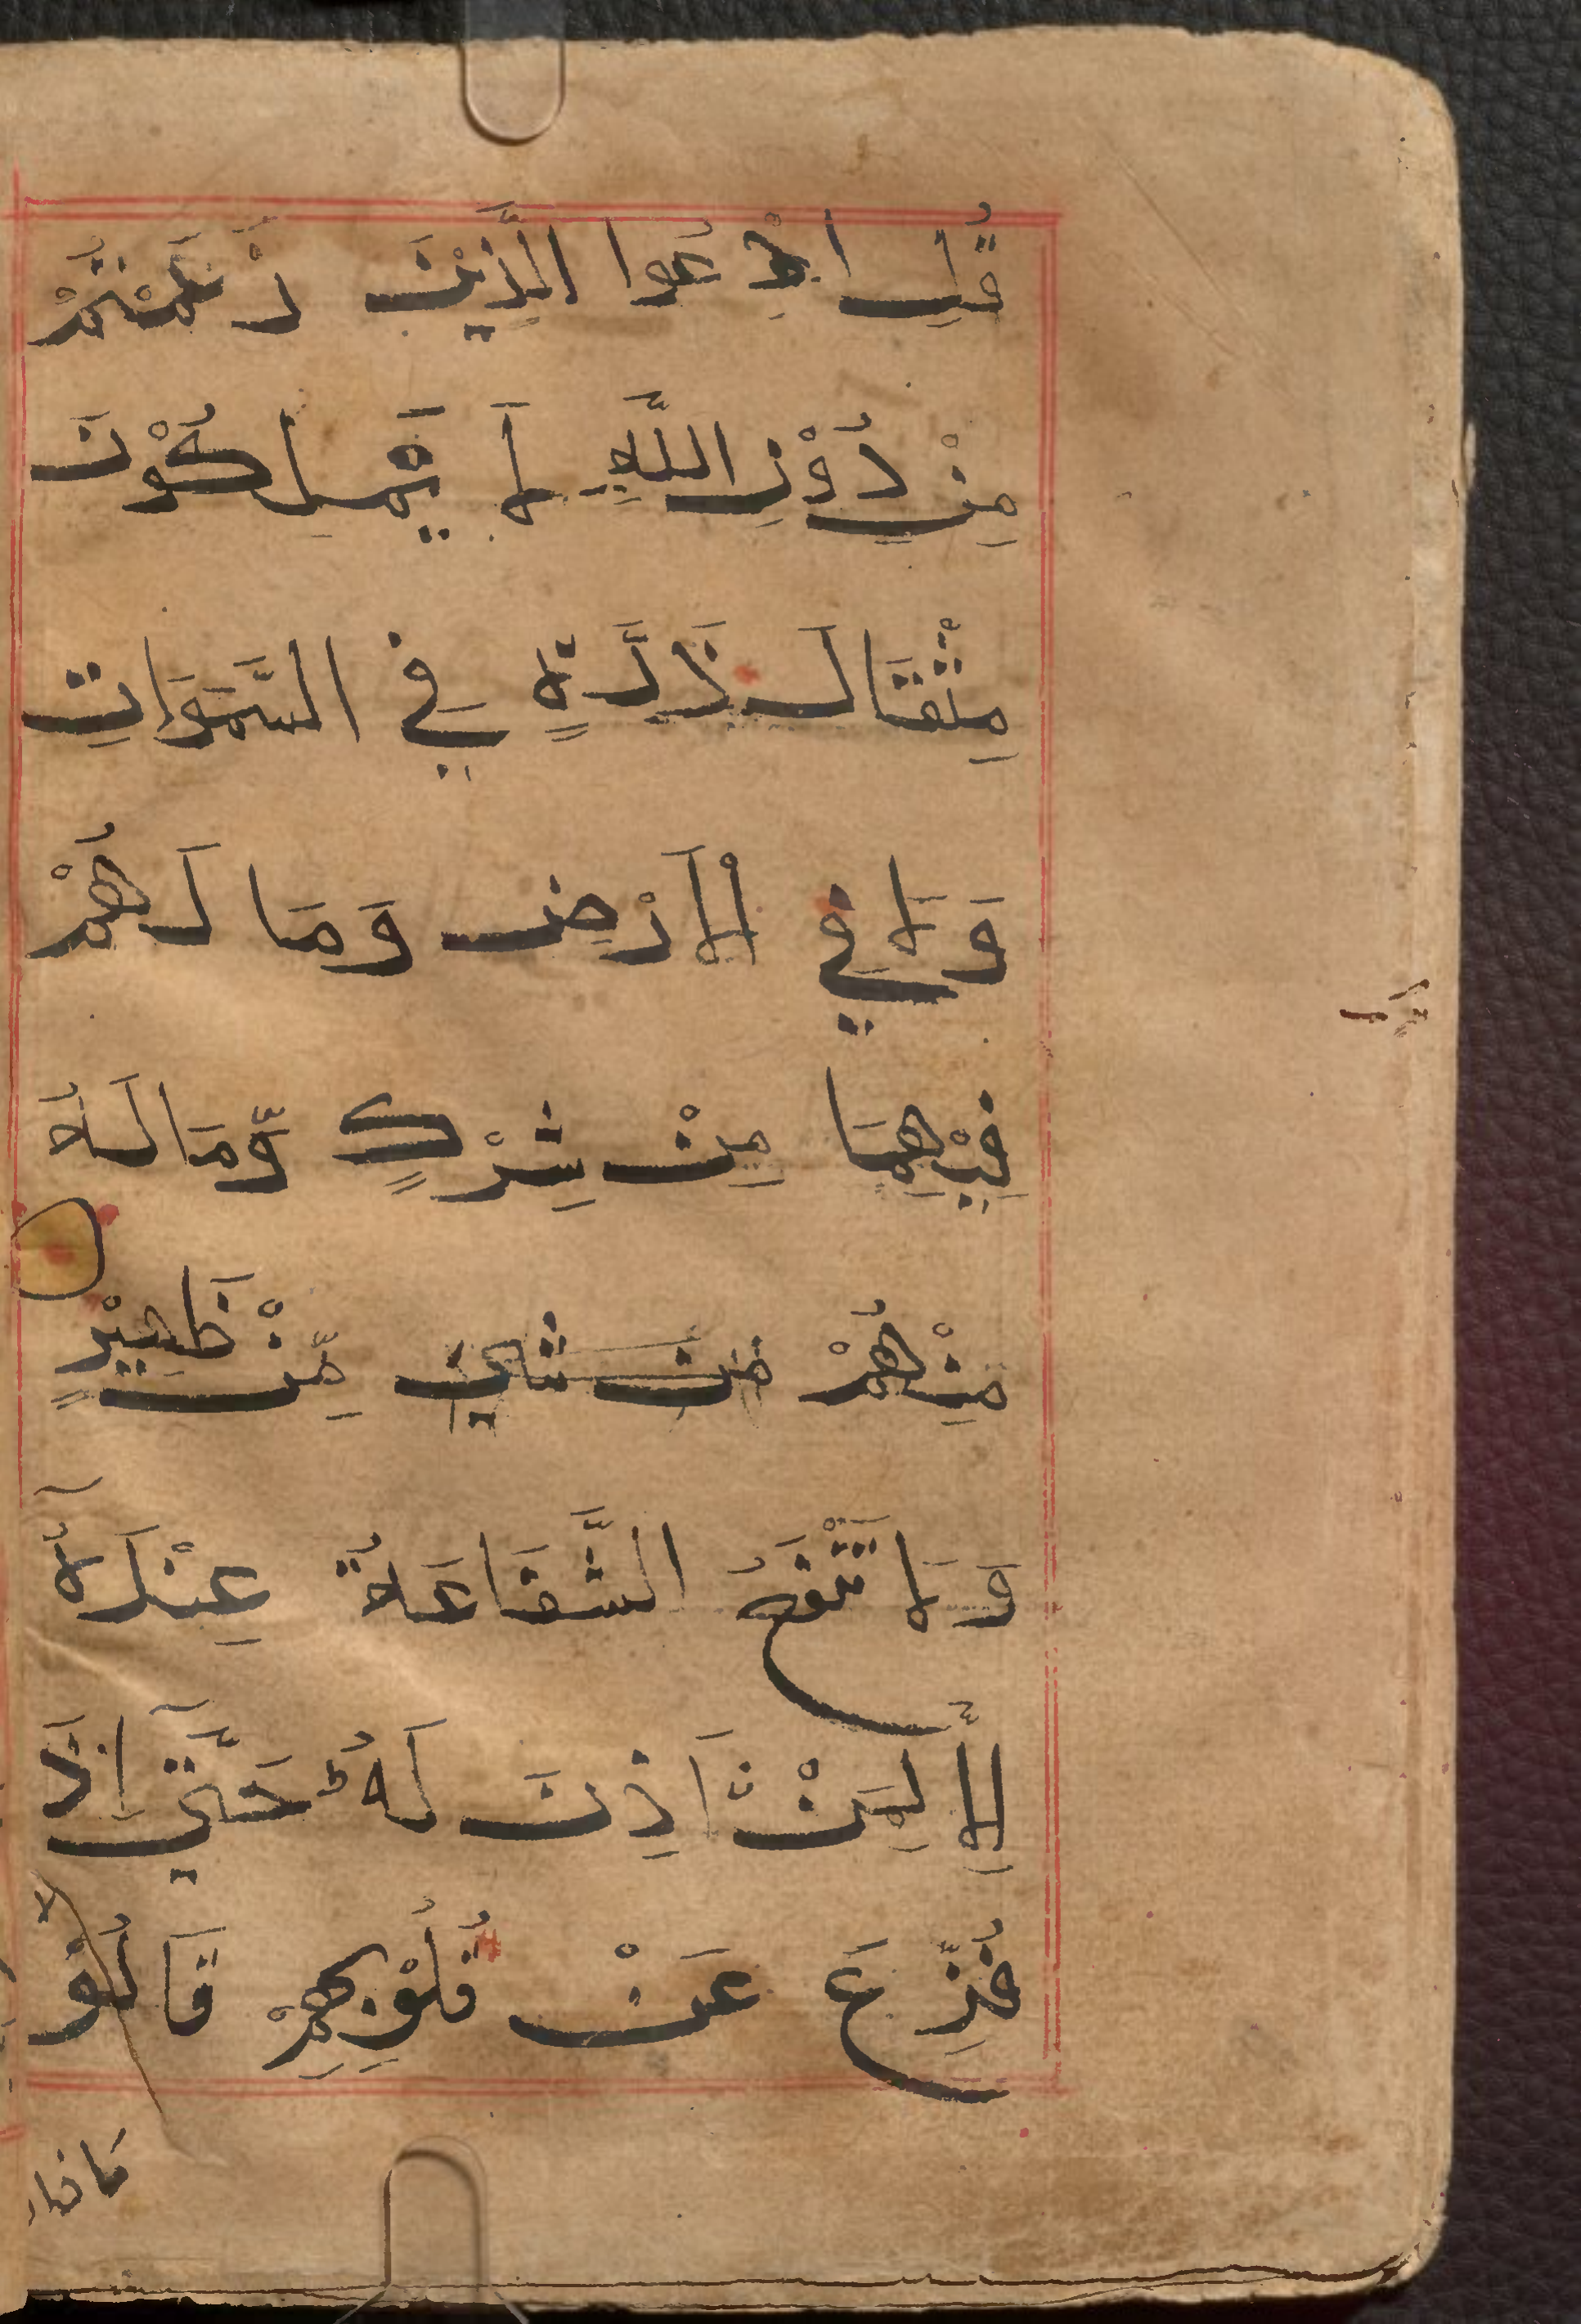 قُلِ ادْعُوا الَّذِيْنَ زَعَمْتُمْ
مِنْ دُوْنِ اللَّهِ لَا يَمْلِكُوْنَ
مِثْقَالَ ذَرَّةٍ فِي السَّمَوَاتِ
وَلَا فِي الْاَرْضِ وَمَا لَهُمْ
فِيْهِمَا مِنْ شِرْكٍ وَّمَا لَهُ
مِنْهُمْ مِّنْ ظَهِيْرٍ
وَلَا تَنْفَعُ الشَّفَاعَةُ عِنْدَهُٓ
اِلَّا لِمَنْ اَذِنَ لَهُ حَتَّىٓ اِذَا
فُزِّعَ عَنْ قُلُوْبِهِمْ قَالُوْا